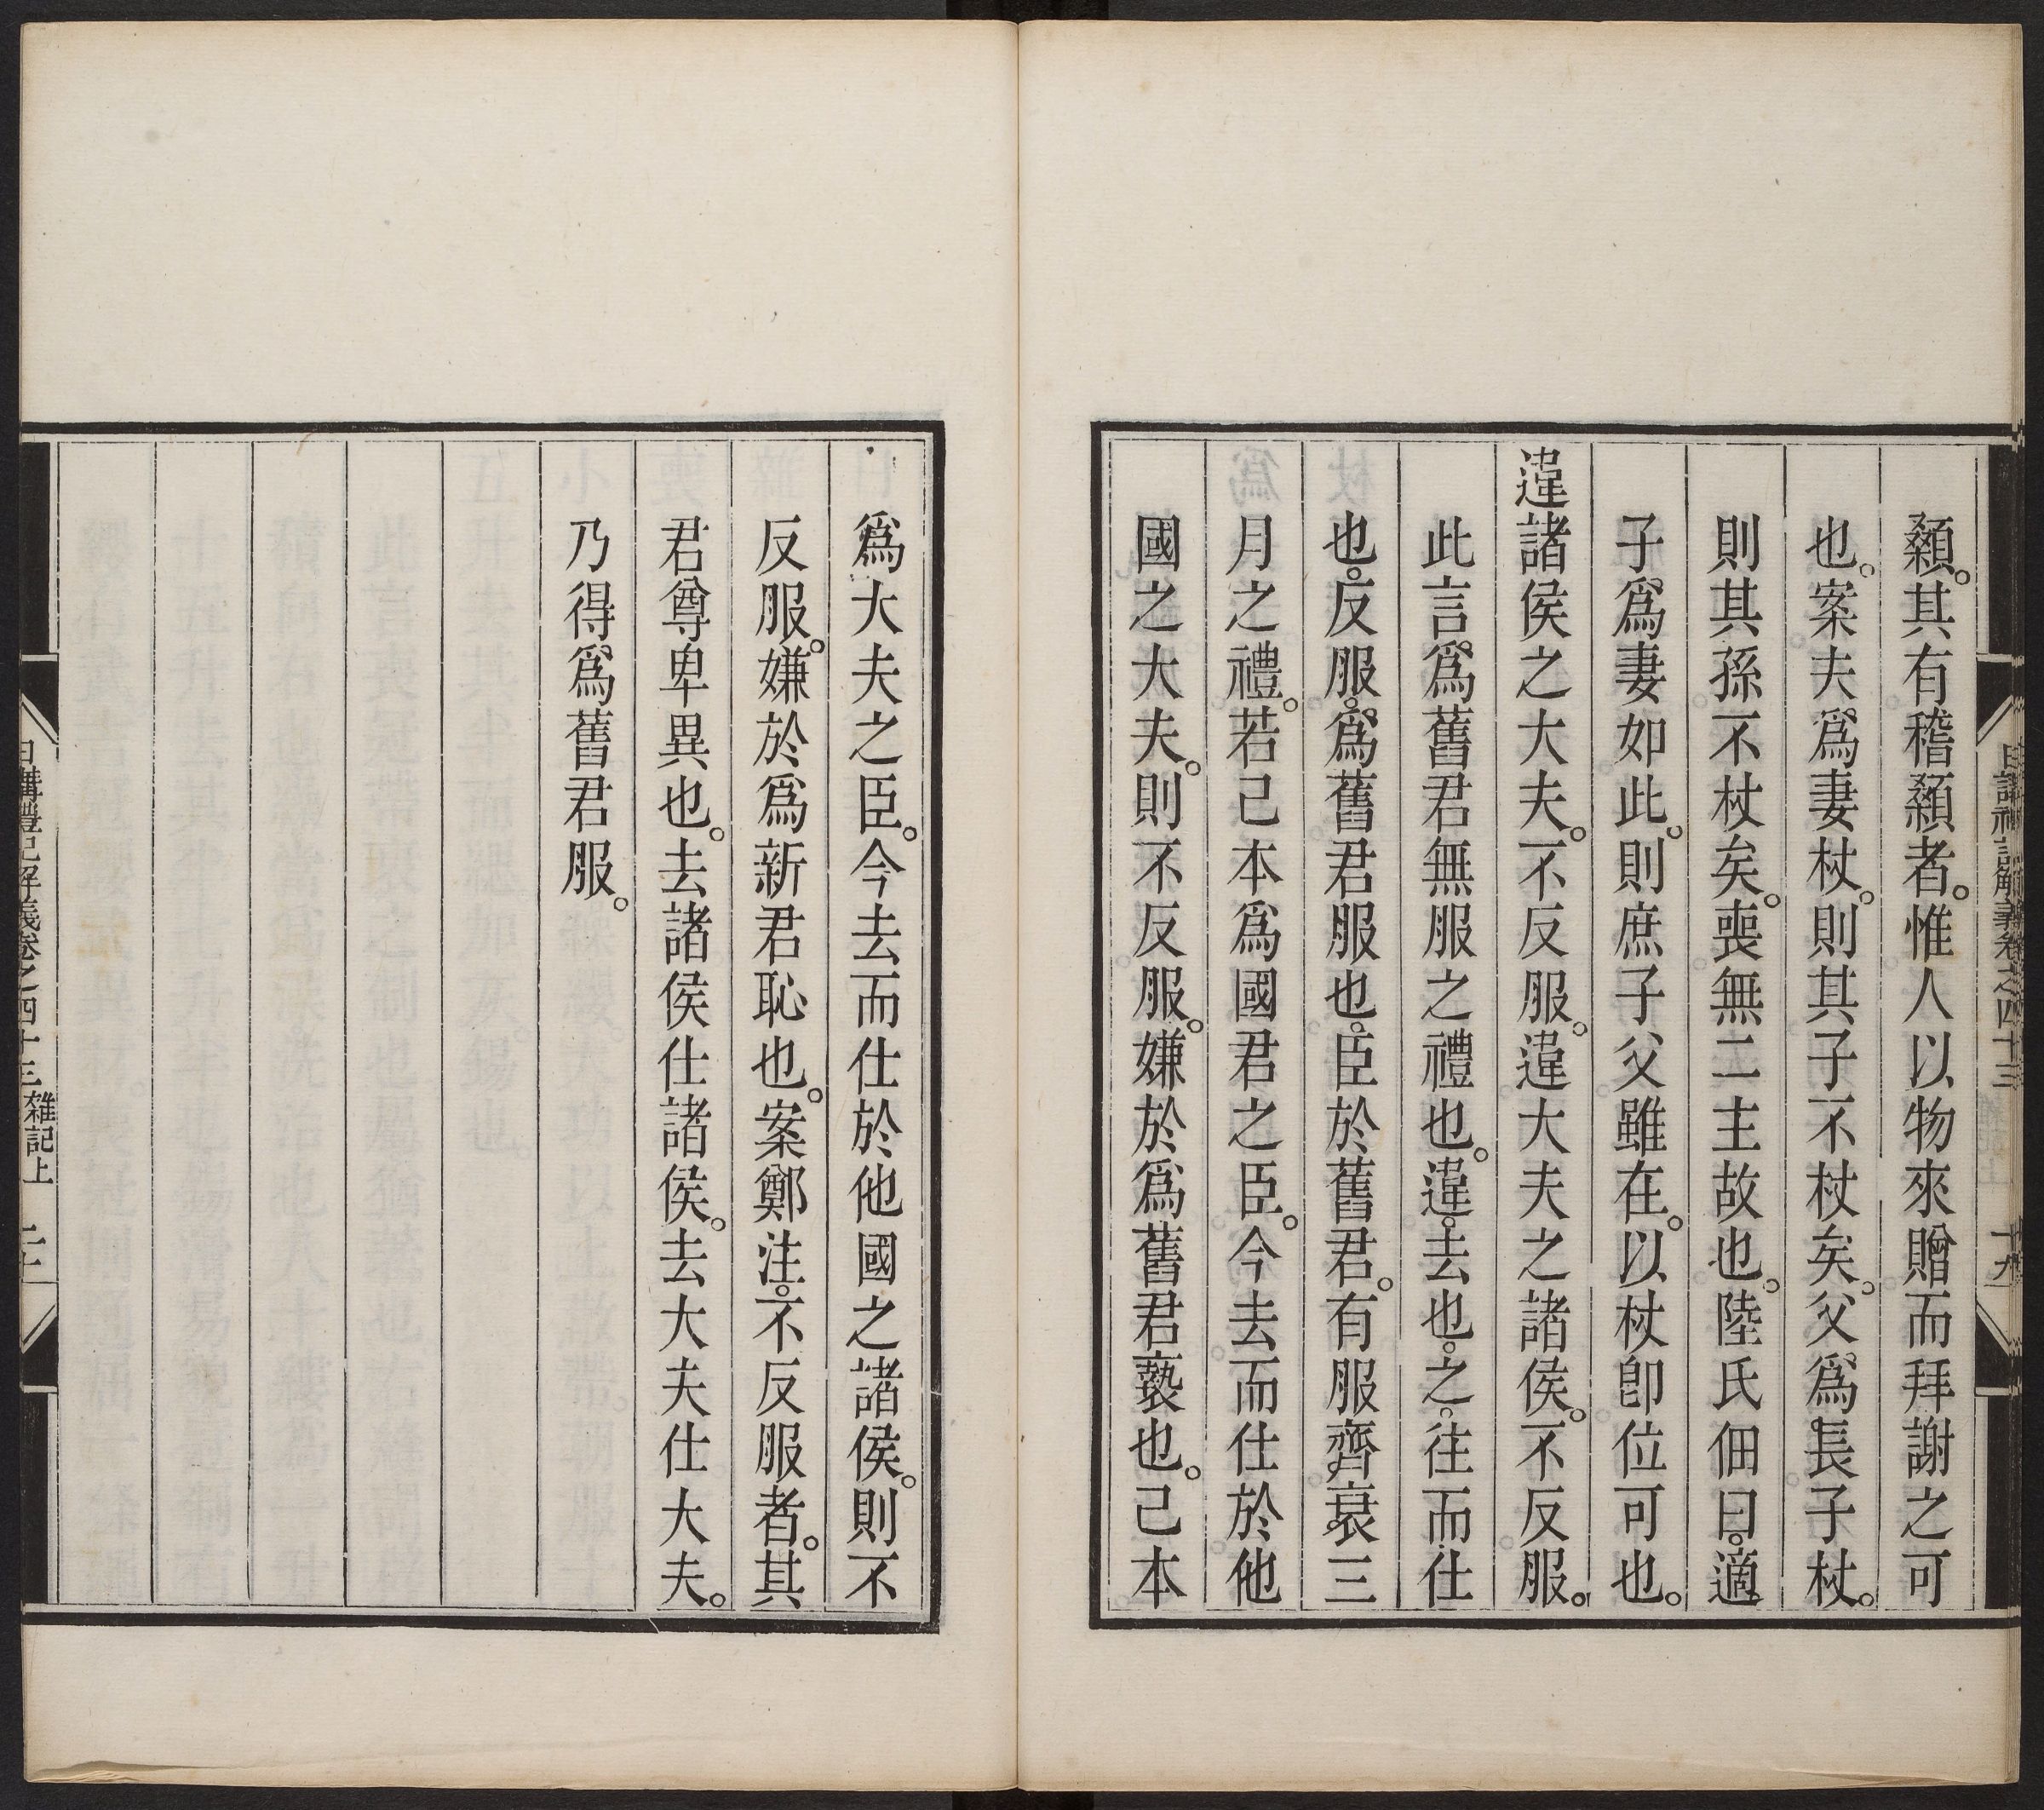 日講禮記解義卷之四十三 十九
顙。其有稽顙者。惟人以物來贈而拜謝之可
也。案夫爲妻杖。則其子不杖矣。父爲長子杖。
則其孫不杖矣。喪無二主故也。陸氏佃曰。適
子爲妻如此。則庶子父雖在。以杖卽位可也。
違諸侯之大夫。不反服。違大夫之諸侯。不反服。
此言爲舊君無服之禮也。違。去也。之。往而仕
也。反服。爲舊君服也。臣於舊君。有服齊衰三
月之禮。若己本爲國君之臣。今去而仕於他
國之大夫。則不反服。嫌於爲舊君褻也。己本
爲大夫之臣。今去而仕於他國之諸侯。則不
反服。嫌於爲新君恥也。案鄭注。不反服者。其
君尊卑異也。去諸侯仕諸侯。去大夫仕大夫。
乃得爲舊君服。
日講禮記解義卷之四十三 雜記上